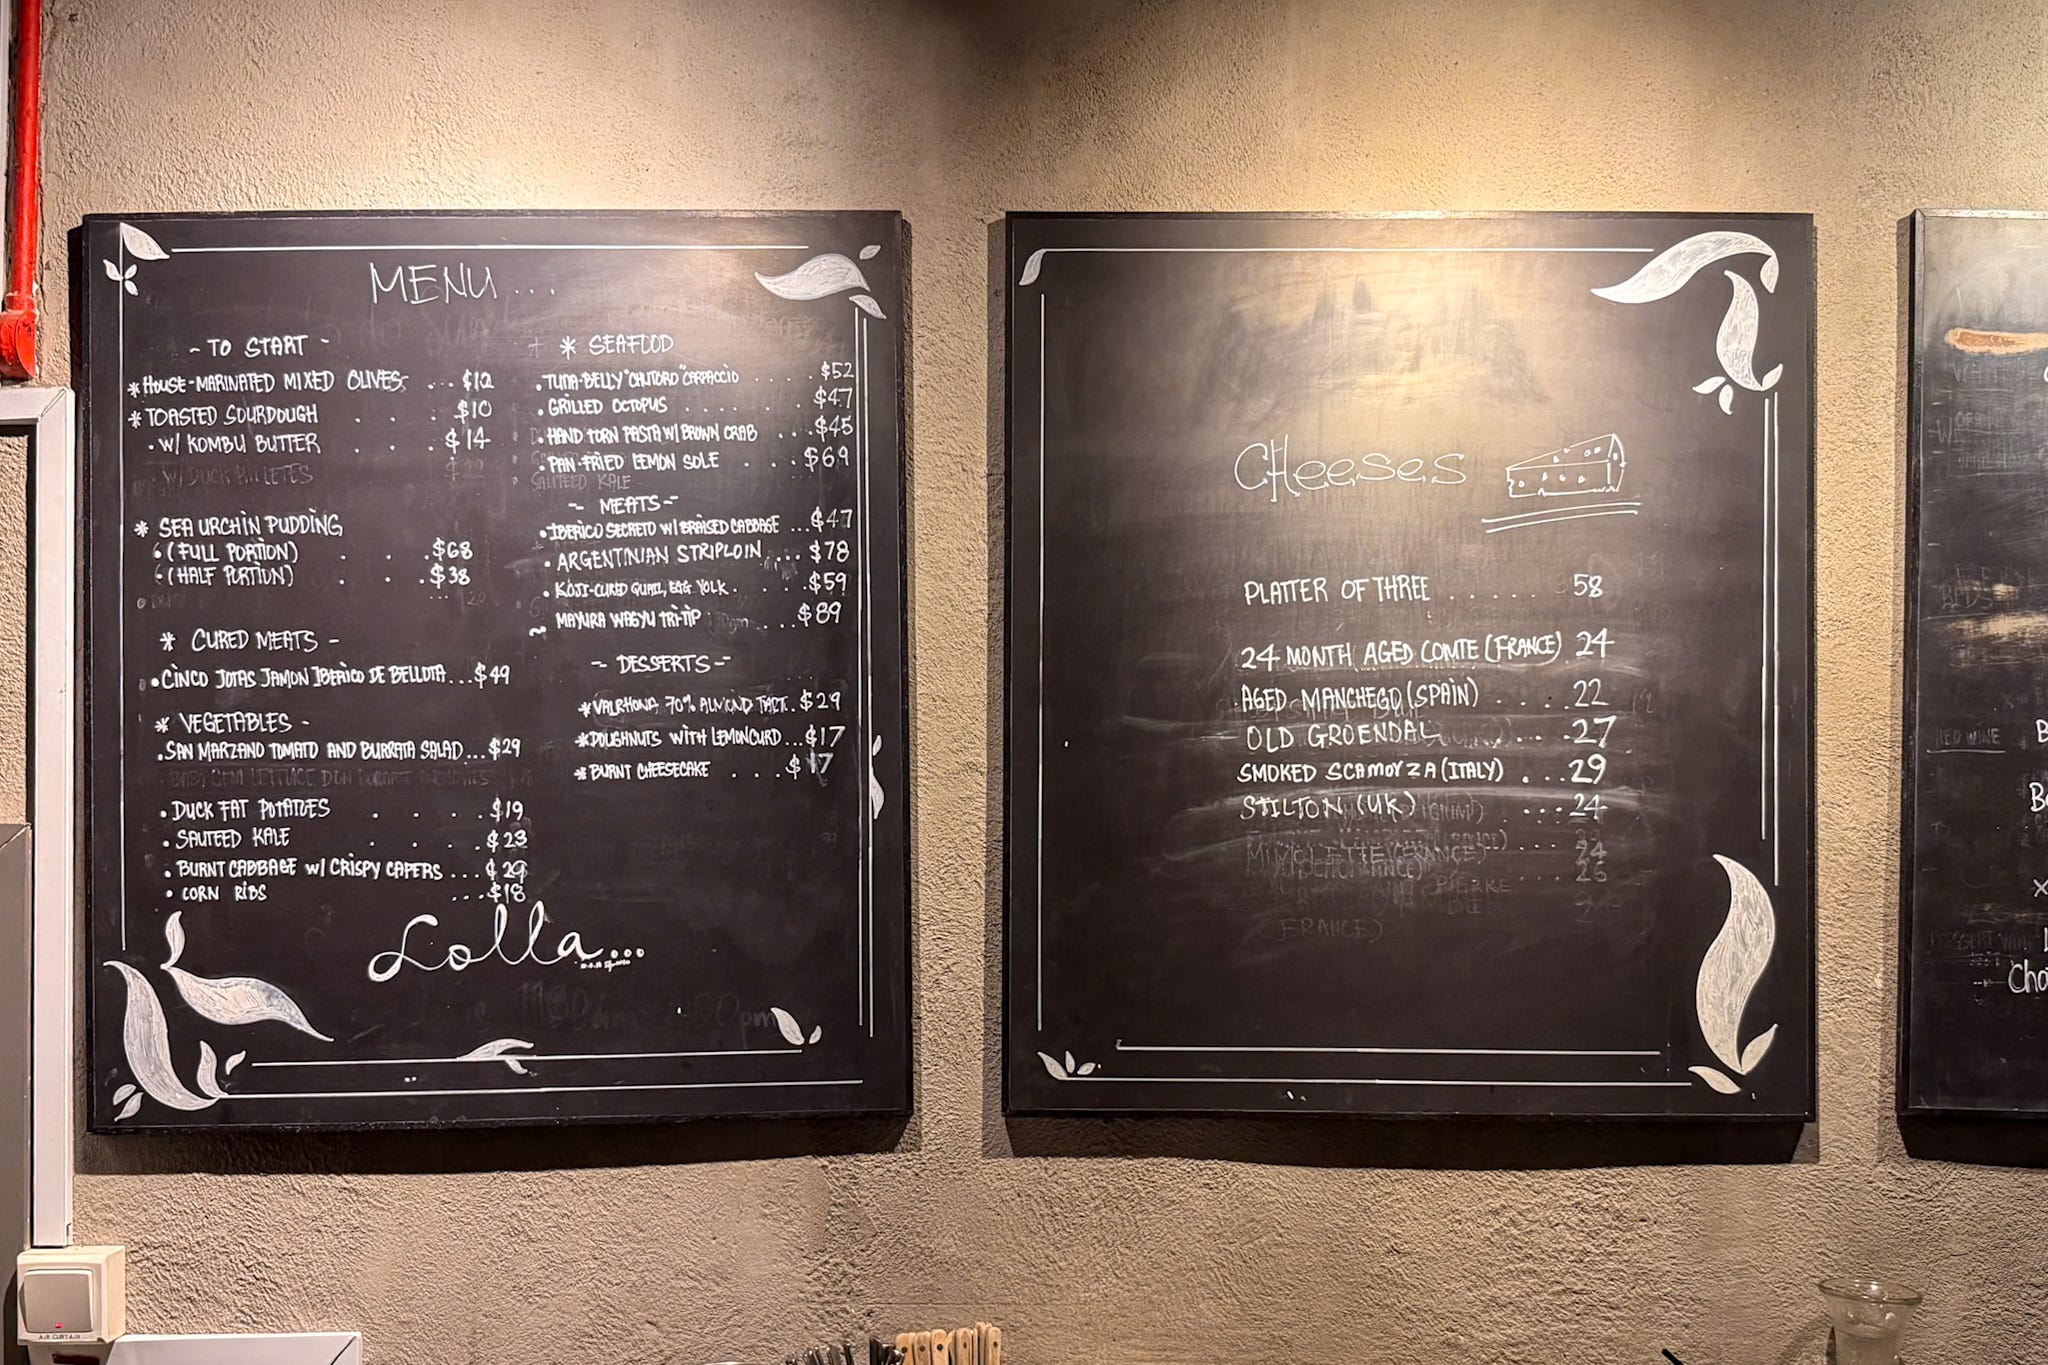 MENU...
- TO START -
* HOUSE-MARINATED MIXED OLIVES. ...$12
* TOASTED SOURDOUGH . . . $10
• W/ KOMBU BUTTER . . $14
W/ DUCK RILLETES
* SEA URCHIN PUDDING
• (FULL PORTION) . . .$68
• (HALF PORTION) . . .$38
* CURED MEATS -
• CINCO JOTAS JAMON IBERICO DE BELLOTA...$49
* VEGETABLES -
• SAN MARZANO TOMATO AND BURRATA SALAD...$29
BABY GEM LETTUCE,
• DUCK FAT POTATOES . . . .$19
• SAUTEED KALE . . . .$23
• BURNT CABBAGE W/ CRISPY CAPERS ...$29
• CORN RIBS ...$18
* SEAFOOD
• TUNA-BELLY "CHUTORO" CARPACCIO . . . .$52
• GRILLED OCTOPUS . . . . . .$47
• HAND TORN PASTA W/ BROWN CRAB ...$45
• PAN-FRIED LEMON SOLE . . .$69
SAUTEED KALE
-- MEATS --
• IBERICO SECRETO W/ BRAISED CABBAGE ...$47
• ARGENTINIAN STRIPLOIN.... $78
• KOJI-CURED QUAIL, EGG YOLK . . .$59
~ MAYURA WAGYU TRI-TIP ...$89
-- DESSERTS --
* VALRHONA 70% ALMOND TART.. $29
* DOUGHNUTS WITH LEMON CURD ...$17
* BURNT CHEESECAKE . . . $17
Lolla...
CHeeses
PLATTER OF THREE . . . . . . 58
24 MONTH AGED COMTE (FRANCE) 24
AGED MANCHEGO (SPAIN) . . . . . 22
OLD GROENDAL . . . . 27
SMOKED SCAMORZA (ITALY) . ...29
STILTON (UK) ....24
MIMOLETTE (FRANCE) ... 24
PIERRE
FRANCE)
RED WINE
Cho
AIR CURTAIN